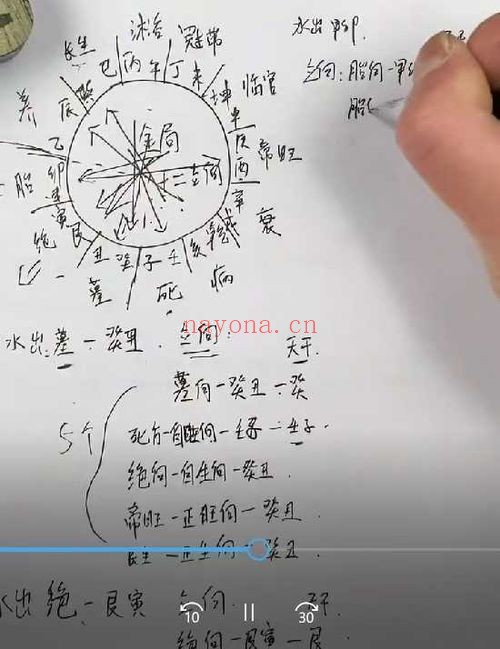 沐浴
冠带
长生
水出卯
巳丙午丁未
坤
临官
立向:胎向一甲
养
胎
申
庚
酉
辛
帝旺
金局
乙
卯
寅
艮
绝
丑
癸子壬
亥
衰
墓
死
病
nayona.cn
水出墓一癸丑.立向:
天干
墓向一癸丑一癸
5个
壬子
绝向一自生向一癸丑.
帝旺一正旺向一癸丑.
长生一正生向一癸丑.
水出绝一艮寅
立向.
绝向一艮寅一艮
10
30